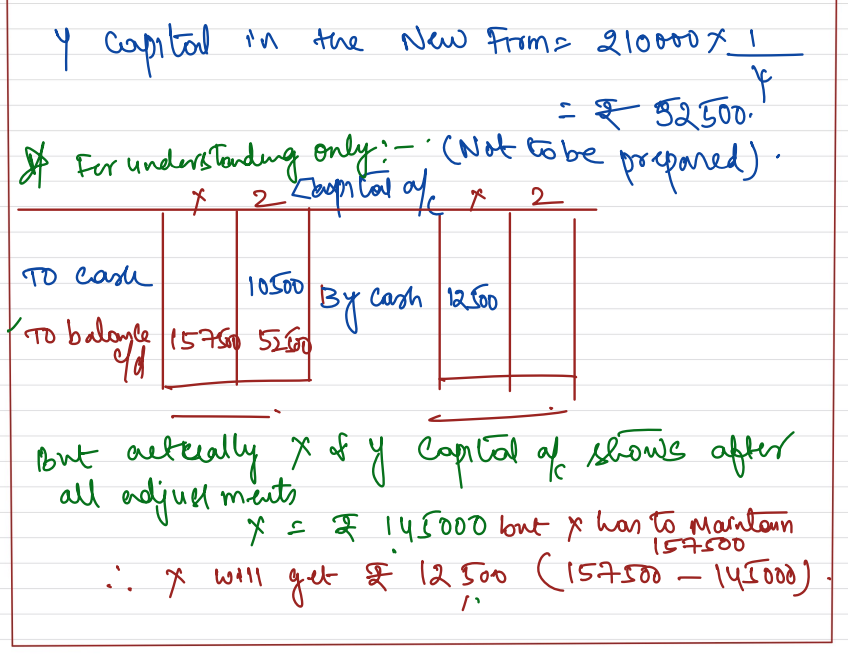 Y Capital in the New From = 210000 × 1/4
= ₹ 52500.
For understanding only :- (Not to be prepared).
Capital a/c
X 2 X 2
To cash 10500 By cash 12500
To balance c/d 157500 52500
But actually X & Y Capital a/c shows after
all adjustments
X = ₹ 145000 but X has to Maintain
157500
∴ X will get ₹ 12500 (157500 - 145000).